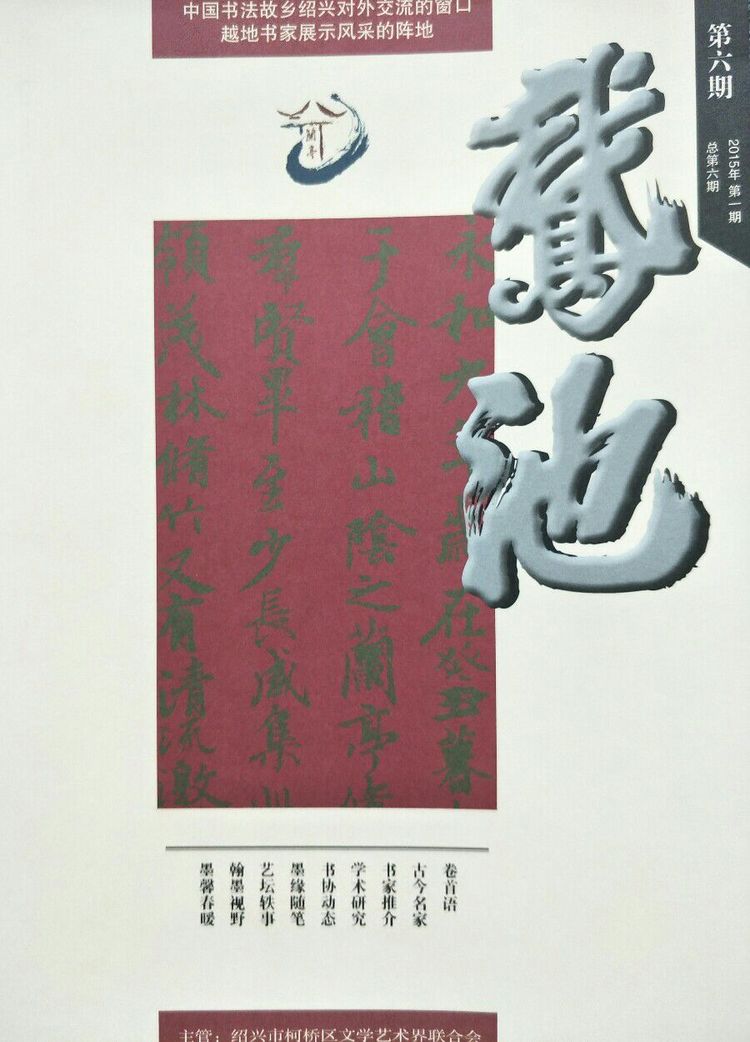 中国书法故乡绍兴对外交流的窗口
越地书家展示风采的阵地
第六期
2015年 第一期
总第六期
鵞池
蘭亭
永和九年歲在癸丑暮
于會稽山陰之蘭亭脩
羣賢畢至少長咸集
領茂林脩竹又有清流激
卷首语
古今名家
书家推介
学术研究
书协动态
墨缘随笔
艺坛轶事
翰墨视野
墨馨春暖
主管：绍兴市柯桥区文学艺术界联合会